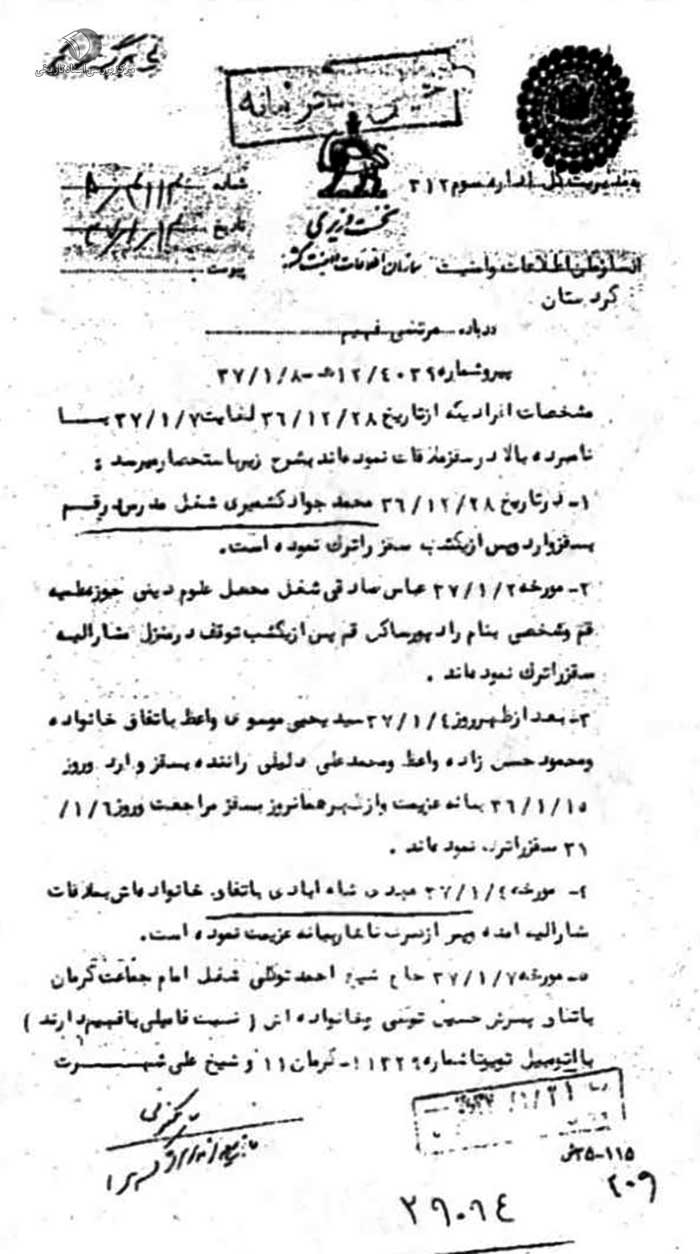 مرکز بررسی اسناد تاریخی
خیلی محرمانه
به مدیریت کل اداره سوم ۳۱۲
شماره
تاریخ
پیوست
نخست وزیری
سازمان اطلاعات و امنیت کشور
از سازمان اطلاعات و امنیت
کردستان
درباره مرتضی فهیم
پیرو شماره ۱۲/۴۰۳۹ه‍ ـ ۳۷/۱/۸
مشخصات افرادیکه از تاریخ ۳۶/۱۲/۲۸ لغایت ۳۷/۱/۷ با
نامبرده بالا در سقز ملاقات نموده‌اند بشرح زیر باستحضار میرسد :
۱- در تاریخ ۳۶/۱۲/۲۸ محمد جواد کشمیری شغل مدرس در قم
بسقز وارد و پس از یکشب سقز را ترک نموده است.
۲- مورخه ۳۷/۱/۲ عباس صادقی شغل محصل علوم دینی حوزه علمیه
قم و شخصی بنام رادپور ساکن قم پس از یکشب توقف در منزل مشارالیه
سقز را ترک نموده‌اند .
۳- بعد از ظهر روز ۳۷/۱/۴ سید یحیی موسوی واعظ باتفاق خانواده
و محمود حسن زاده واعظ و محمد علی دلیلی راننده بسقز وارد و روز
۳۶/۱/۱۵ ببانه عزیمت و از ظهر همانروز بسقز مراجعت و روز ۱/۶/
۳۱ سقز را ترک نموده‌اند .
۴- مورخه ۳۷/۱/۴ مهدی شاه ابادی باتفاق خانواده‌اش بملاقات
مشارالیه امده و پس از صرف ناهار ببانه عزیمت نموده است.
۵- مورخه ۳۷/۱/۷ حاج شیخ احمد توکلی شغل امام جماعت کرمان
باتفاق پسرش حسین توکلی و خانواده اش ( نسبت فامیلی با فهیم دارند )
با اتومبیل تویوتا شماره ۱۳۲۹ ۱- کرمان ۱۱ و شیخ علی شهرت
۱/۲۱
۱۱۵-۳۵ش
۲۰۹
۲۹۰۹۴